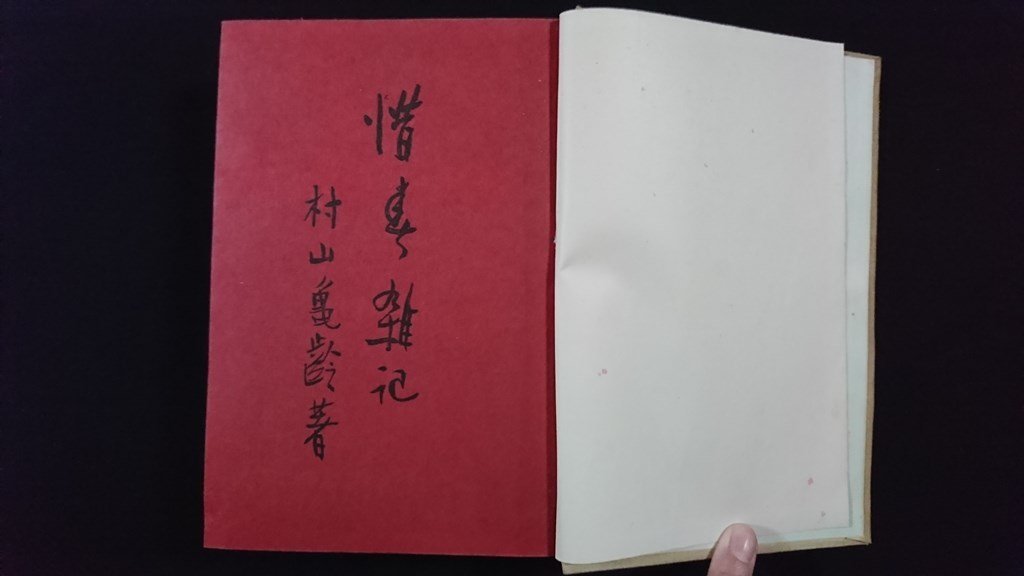 惜春雑記
村山亀齢著